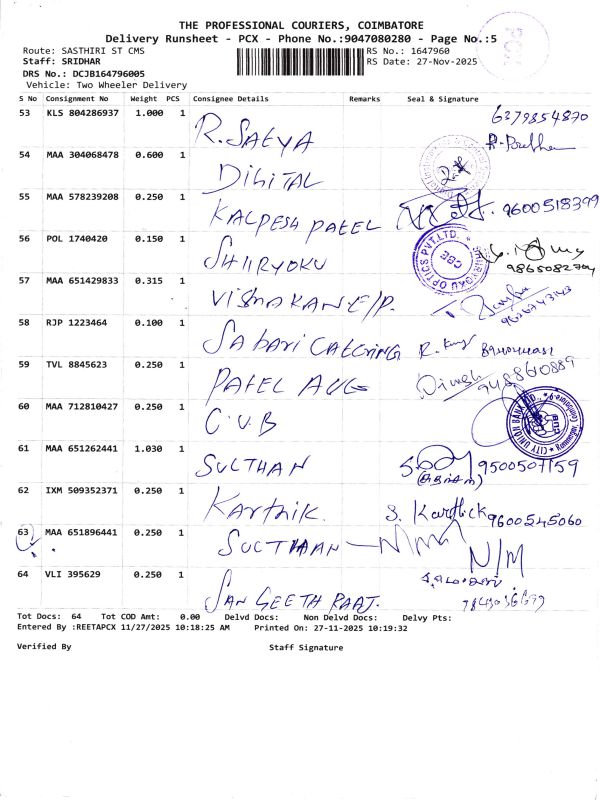 THE PROFESSIONAL COURIERS, COIMBATORE
Delivery Runsheet - PCX - Phone No.:9047080280 - Page No.:5
PCX
Route: SASTHIRI ST CMS
RS No.: 1647960
Staff: SRIDHAR
RS Date: 27-Nov-2025
DRS No.: DCJB164796005
Vehicle: Two Wheeler Delivery
S No Consignment No Weight PCS Consignee Details Remarks Seal & Signature
53 KLS 804286937 1.000 1 R. SATYA 6279854870
54 MAA 304068478 0.600 1 DIGITAL
55 MAA 578239208 0.250 1 KALPESH PATEL 9600518399
56 POL 1740420 0.150 1 SHIRYOKU
SHIRYOKU OPTICS PVT.LTD. CBE
57 MAA 651429833 0.315 1 VISHAKAN E/P.
58 RJP 1223464 0.100 1 SABARI CATERING R.
59 TVL 8845623 0.250 1 PATEL AUG Dinesh
60 MAA 712810427 0.250 1 C.U.B
CITY UNION BANK LTD. CUB
61 MAA 651262441 1.030 1 SULTHAN 9500507159
62 IXM 509352371 0.250 1 Karthik. S. Karthick 9600545060
63 MAA 651896441 0.250 1 SULTHAAN N/M
64 VLI 395629 0.250 1 SANGEETH RAAJ.
Tot Docs: 64 Tot COD Amt: 0.00 Delvd Docs: Non Delvd Docs: Delvy Pts:
Entered By :REETAPCX 11/27/2025 10:18:25 AM Printed On: 27-11-2025 10:19:32
Verified By Staff Signature